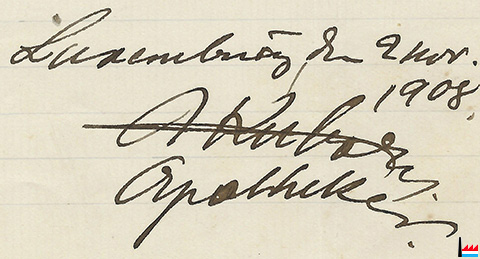 Luxemburg, den 9 nov.
1908
A Kuborn
Apotheker.